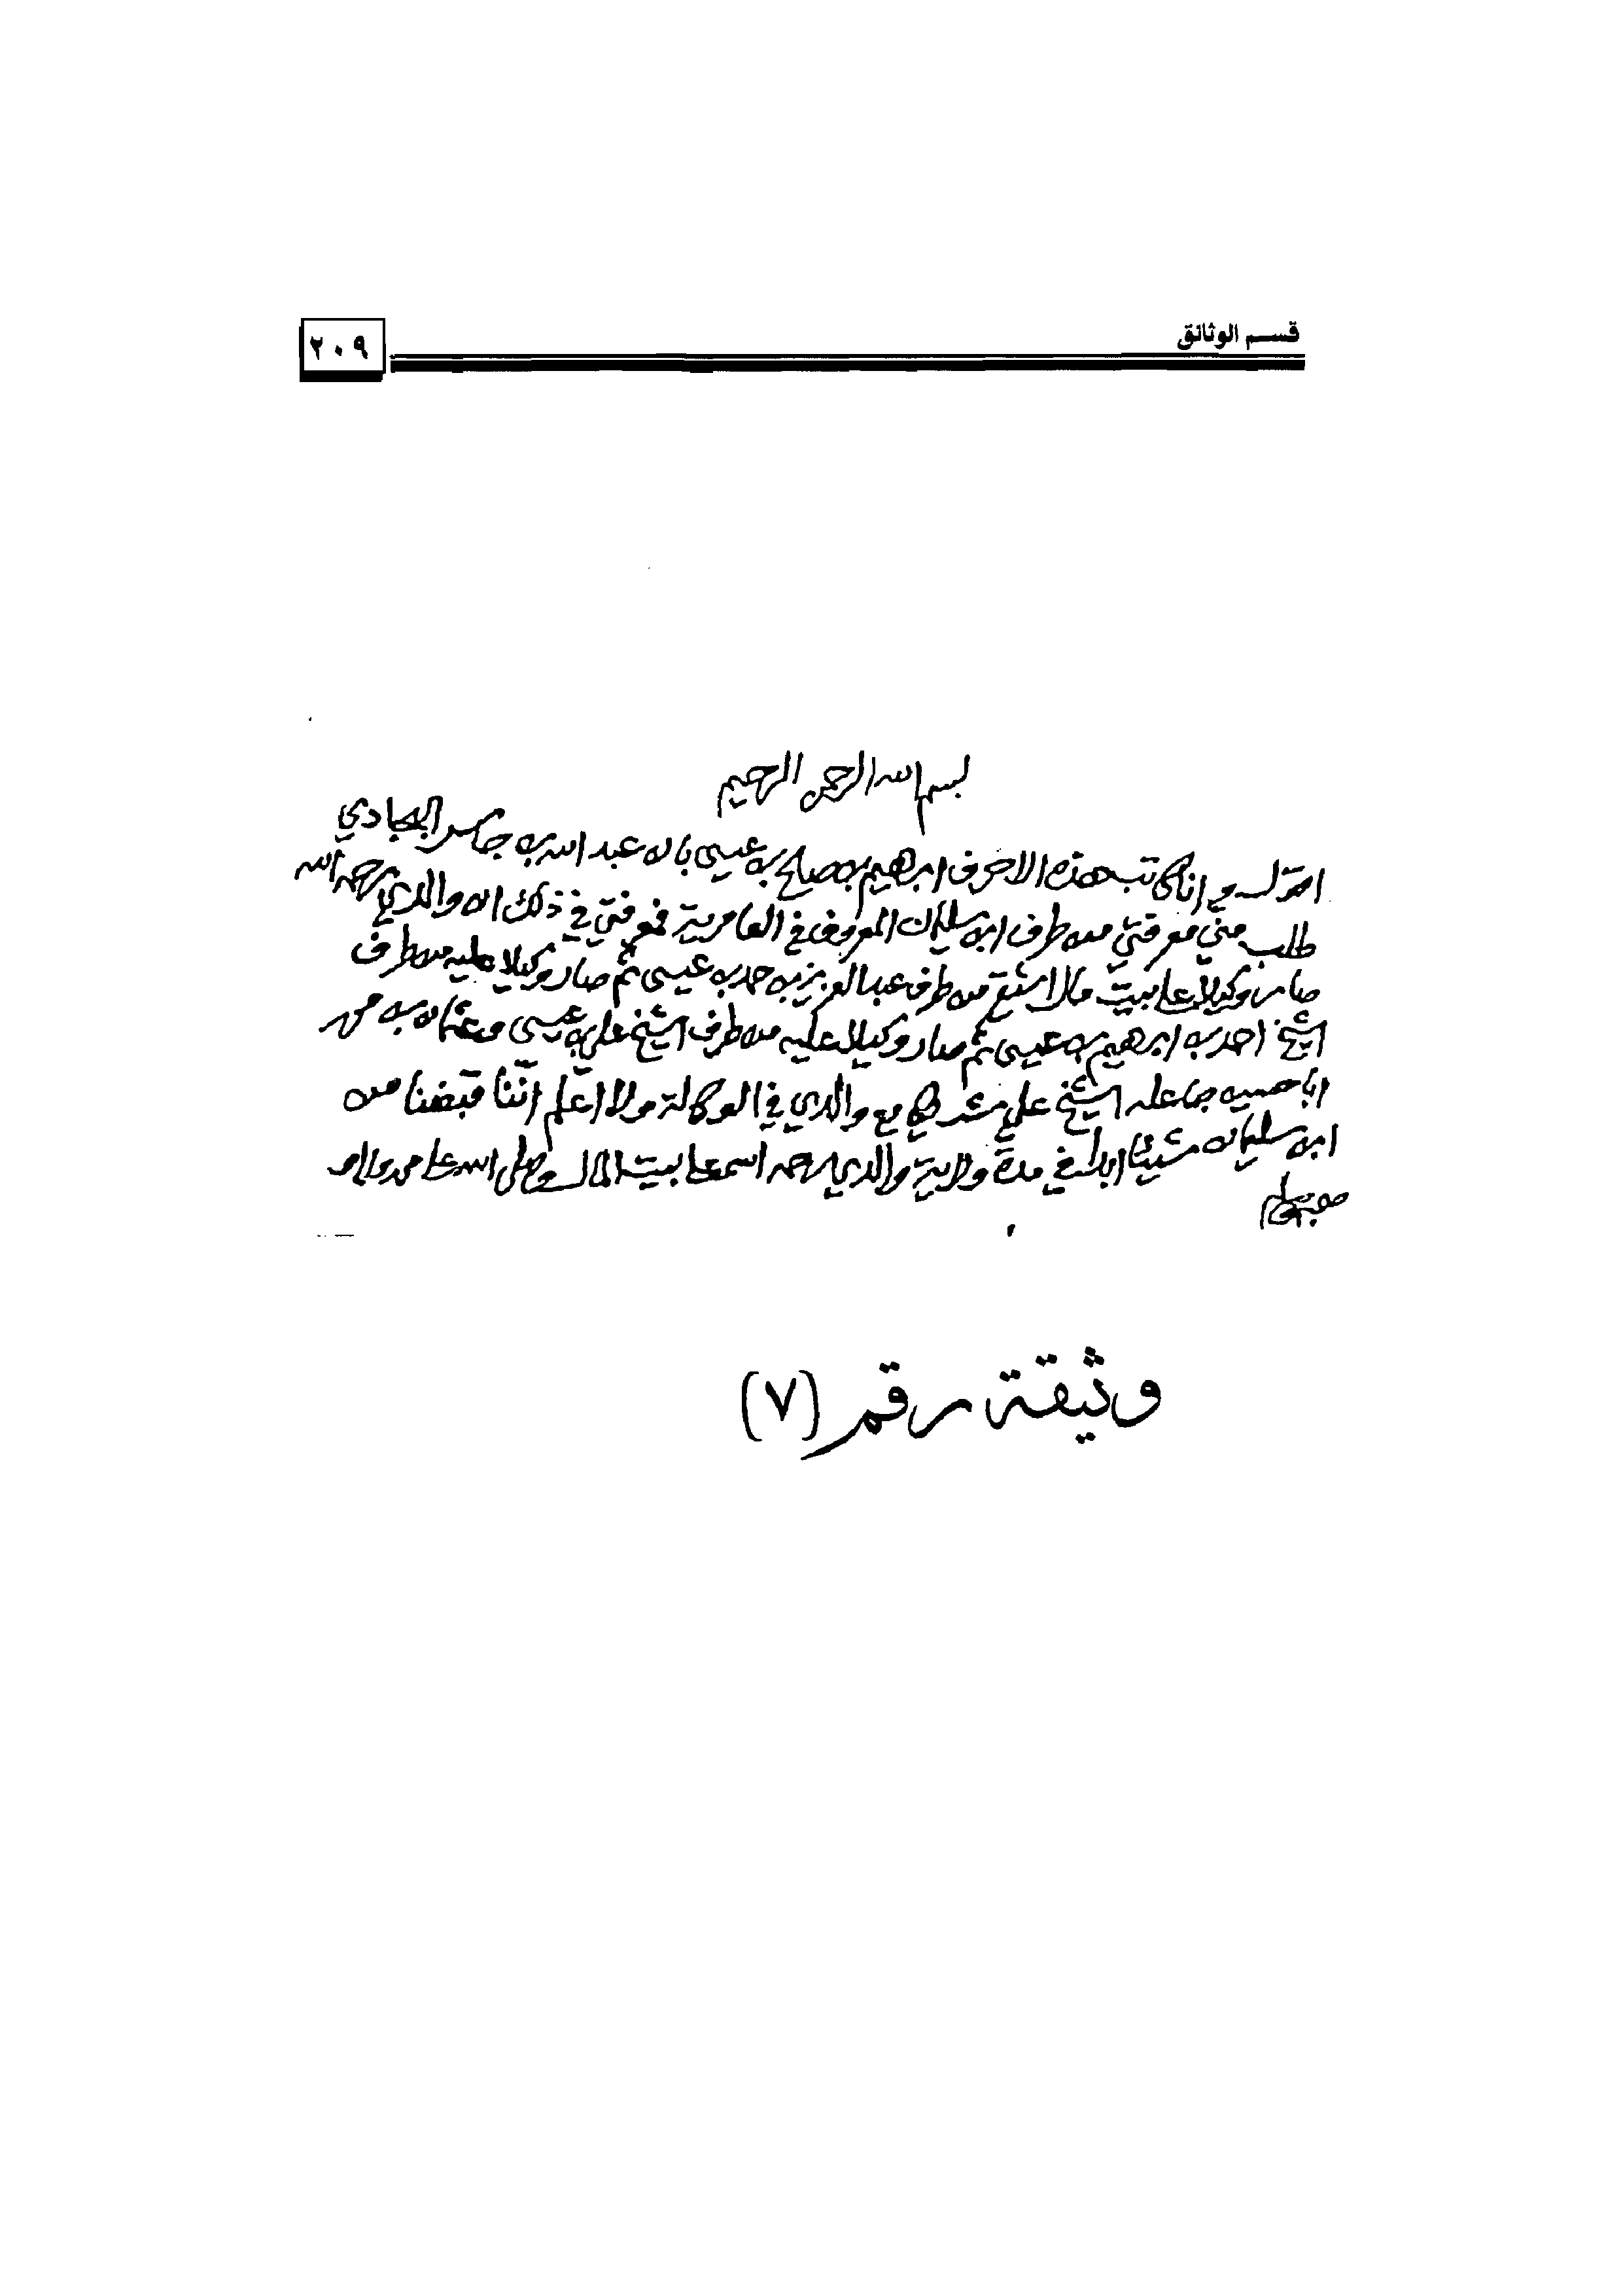 قسم الوثائق
٢٠٩
بسم الله الرحمن الرحيم
اقر لدي وانا كاتب هذه الاحرف ابرهيم بن صالح بن عيسى بان عبد الله بن جاسر البجادي
طلب مني معرفتي من طرف ابن سليمان المعروف في العامرية فمعرفتي في ذلك ان والدي رحمه الله
صار وكيلا على بيت مال اشيقر من طرف عبد العزيز بن حمد بن عيسى ثم صار وكيلا عليه من طرف
الشيخ احمد بن ابرهيم بن عيسى ثم صار وكيلا عليه من طرف الشيخ علي بن عيسى وعثمان بن محمد
ابا حسين جاعله الشيخ علي شريكا مع والدي في الوكالة ولا اعلم اننا قبضنا من
ابن سليمان شيئا ابدا في مدة ولاية والدي رحمه الله على بيت المال وصلى الله على محمد واله
وصحبه وسلم
وثيقة رقم (٧)